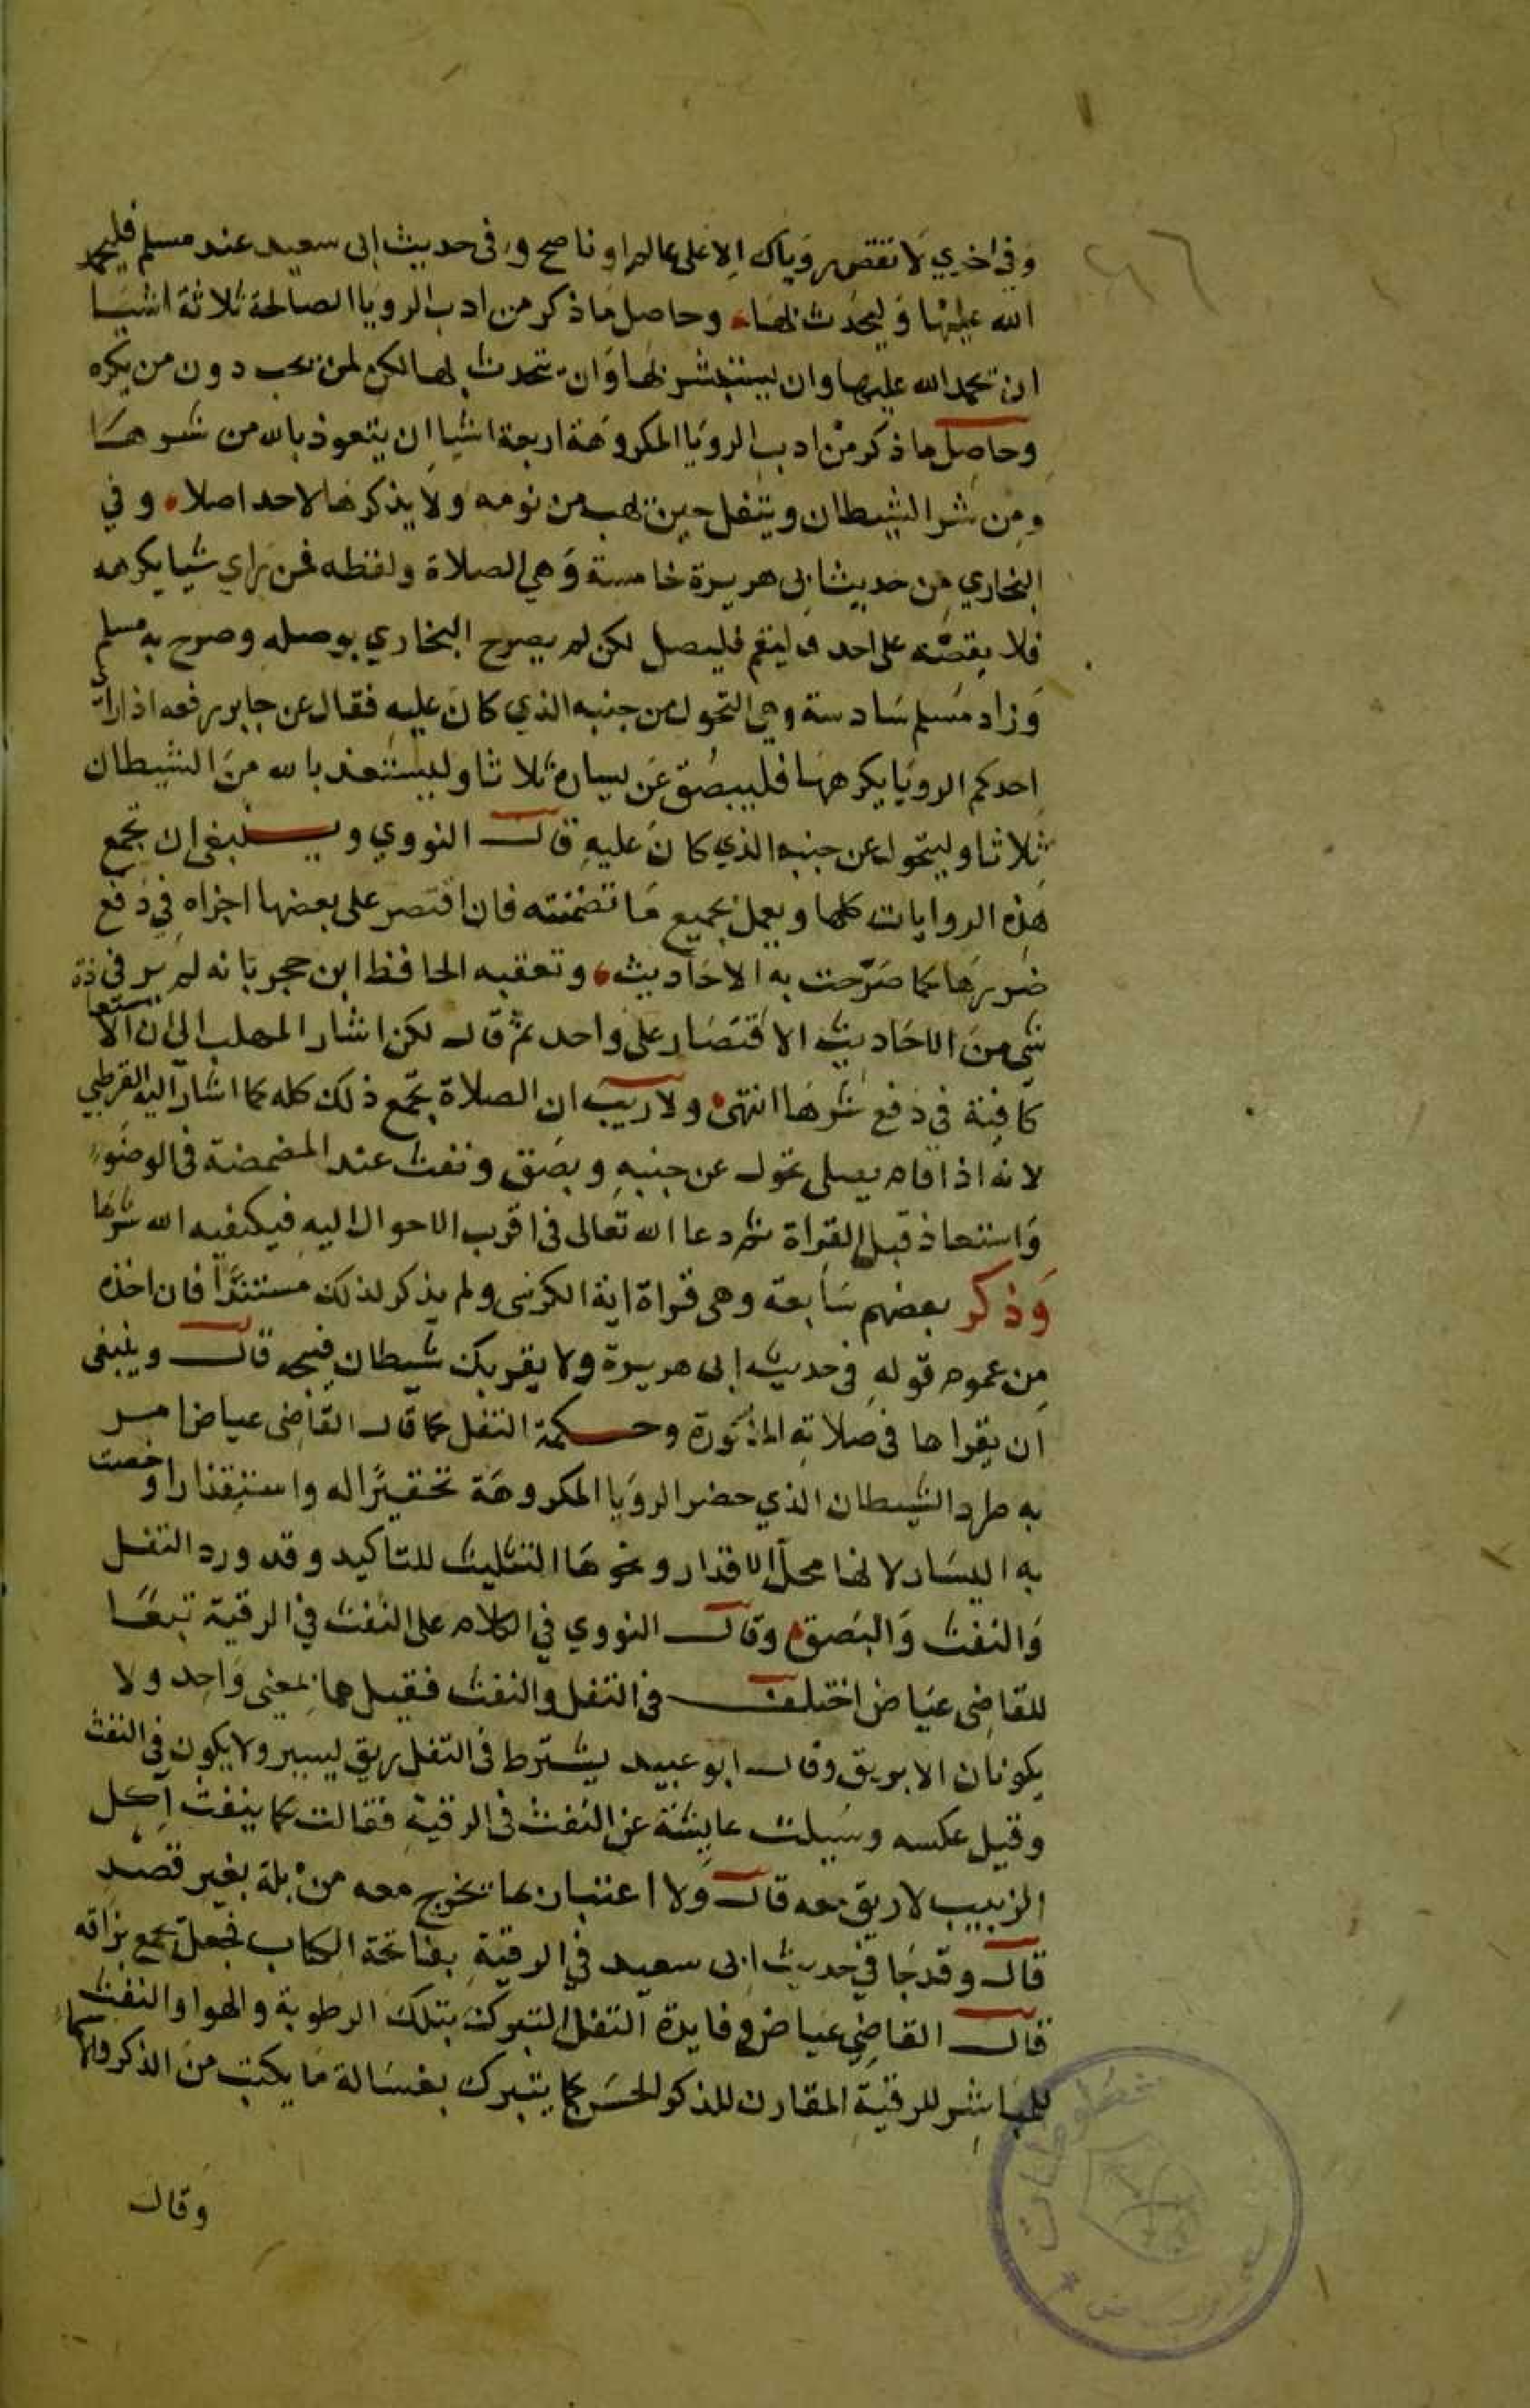 ٢٦٦
وفي اخري لا تقصص روياك الا على عالم او ناصح وفى حديث ابى سعيد عند مسلم فليحمد
الله عليها وليحدث بها وحاصل ما ذكر من ادب الرويا الصالحة ثلاثة اشيا
ان يحمد الله عليها وان يستبشر بها وان يتحدث بها لكن لمن يحب دون من يكره
وحاصل ما ذكر من ادب الرويا المكروهة اربعة اشيا ان يتعوذ بالله من شرها
ومن شر الشيطان ويتفل حين يهب من نومه ولا يذكرها لاحد اصلا وفي
البخاري من حديث ابى هريرة خامسة وهي الصلاة ولفظه فمن راي شيا يكرهه
فلا يقصه على احد وليقم فليصل لكن لم يصرح البخاري بوصله وصرح به مسلم
وزاد مسلم سادسة وهي التحول من جنبه الذي كان عليه فقال عن جابر رفعه اذا راى
احدكم الرويا يكرهها فليبصق عن يساره ثلاثا وليستعذ بالله من الشيطان
ثلاثا وليتحول عن جنبه الذي كان عليه قال النووي وينبغى ان تجمع
هذه الروايات كلها ويعمل بجميع ما تضمنته فان اقتصر على بعضها اجزاه في دفع
ضررها كما صرحت به الاحاديث وتعقبه الحافظ ابن حجر بانه لم ير فى
شي من الاحاديث الاقتصار على واحد ثم قال لكن اشار المهلب الى ان الاستعاذة
كافية في دفع شرها انتهى ولا ريب ان الصلاة تجمع ذلك كله كما اشار اليه القرطبي
لانه اذا قام يصلى تحول عن جنبه وبصق ونفث عند المضمضة فى الوضوء
واستعاذ قبل القراة ثم دعا الله تعالى فى اقرب الاحوال اليه فيكفيه الله شرها
وذكر بعضهم سابعة وهى قراة اية الكرسى ولم يذكر لذلك مستندا فان اخذه
من عموم قوله في حديث ابى هريرة ولا يقربك شيطان فيتجه قال وينبغى
ان يقراها فى صلاته المذكورة وحكمة التفل كما قال القاضى عياض امر
به طرد الشيطان الذي حضر الرويا المكروهة تحقيرا له واستقذارا وخصت
به اليسار لانها محل الاقذار ونحوها التثليث للتاكيد وقد ورد التفل
والنفث والبصق وقال النووي في الكلام على النفث في الرقية تبعا
للقاضى عياض اختلف فى التفل والنفث فقيل هما بمعنى واحد ولا
يكونان الا بريق وقال ابو عبيد يشترط فى التفل ريق يسير ولا يكون في النفث
وقيل عكسه وسيلت عايشة عن النفث فى الرقية فقالت كما ينفث آكل
الزبيب لا ريق معه قال ولا اعتبار بما يخرج معه من بلة بغير قصد
قال وقد جا في حديث ابى سعيد في الرقية بفاتحة الكتاب فجعل يجمع بزاقه
قال القاضى عياض وفايدة التفل التبرك بتلك الرطوبة والهوا والنفث
للمباشر للرقية المقارن للذكر الحسن كما يتبرك بغسالة ما يكتب من الذكر والاسماء
وقال
مخطوطات